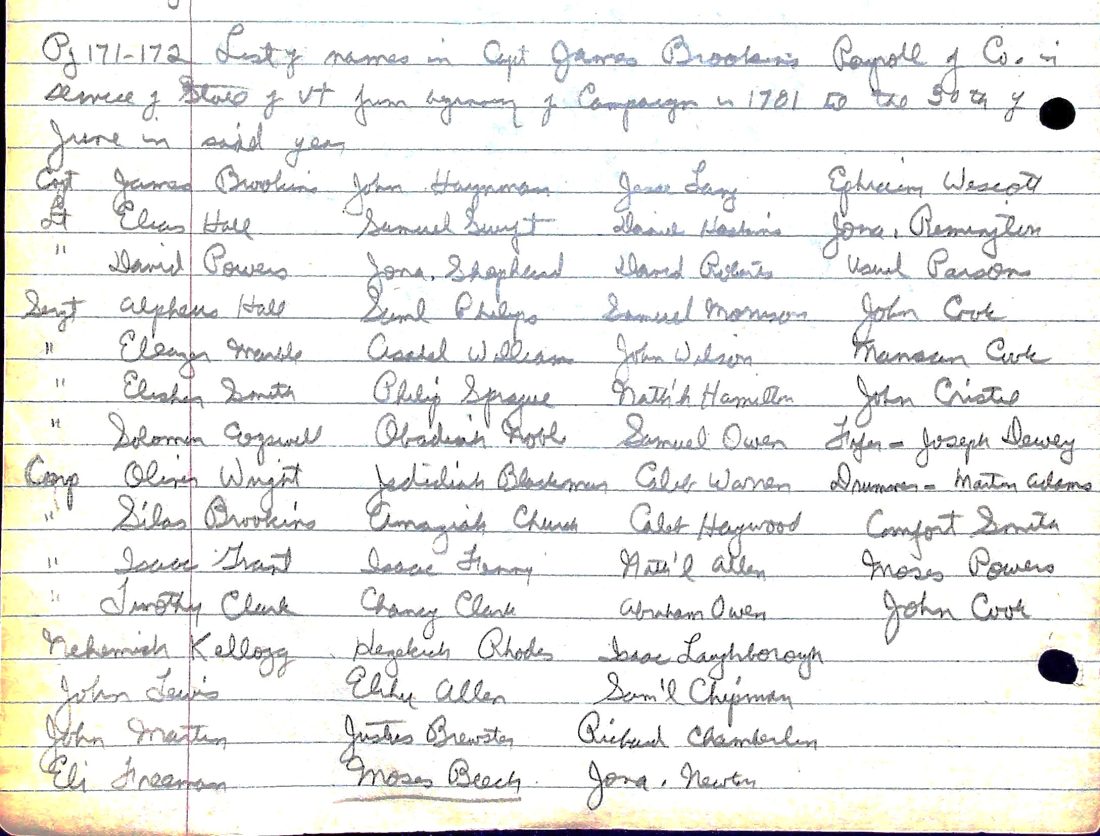 Pg 171-172 List of names in Capt James Brookins Payroll of Co. in
service of State of Vt from begining of Campaign in 1781 to the 30th of
June in said year
Capt James Brookins John Haynman Jesse Lany Ephraim Wescott
Lt Elias Hall Samuel Swift Daniel Hoskins Jona. Remington
" David Powers Jona. Shepherd David Roberts Usual Parsons
Sergt Alpheus Hall Saml Philips Samuel Morrison John Cook
" Eleazer Marble Asahel William John Wilson Manasan Cook
" Elisha Smith Philip Sprague Nath'l Hamilton John Cristie
" Solomon Cogswell Obadiah Noble Samuel Owen Fifer - Joseph Dewey
Corp Oliver Wright Jedidiah Blackman Caleb Warren Drummer - Martin Adams
" Silas Brookins Amaziah Church Caleb Haywood Comfort Smith
" Isaac Grant Isaac Nath'l Allen Moses Powers
" Timothy Clark Chancy Clark Abraham Owen John Cook
Nehemiah Kellogg Hezekiah Rhodes Isaac Laughborough
John Lewis Elihu Allen Sam'l Chipman
John Martin Justus Brewster Richard Chamberlin
Eli Freeman Moses Beech Jona. Newton